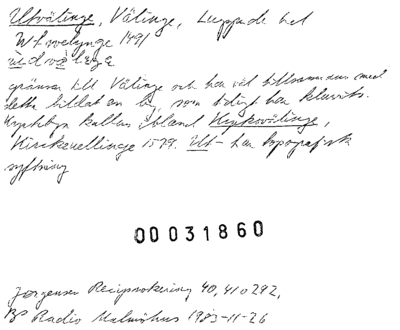 Utvälinge, Välinge, Luggude hd
Wtwelynge 1491
gränsar till Välinge och har väl tillsammans med
detta bildat en by, som tidigt har kluvits.
Kyrkbyn kallas ibland Kyrkvälinge,
Kirckeuellinge 1579. Ut- har topografisk
syftning
00031860
Jørgensen Reciprokering 40, 41 o 292,
BP Radio Malmöhus 1983-11-26